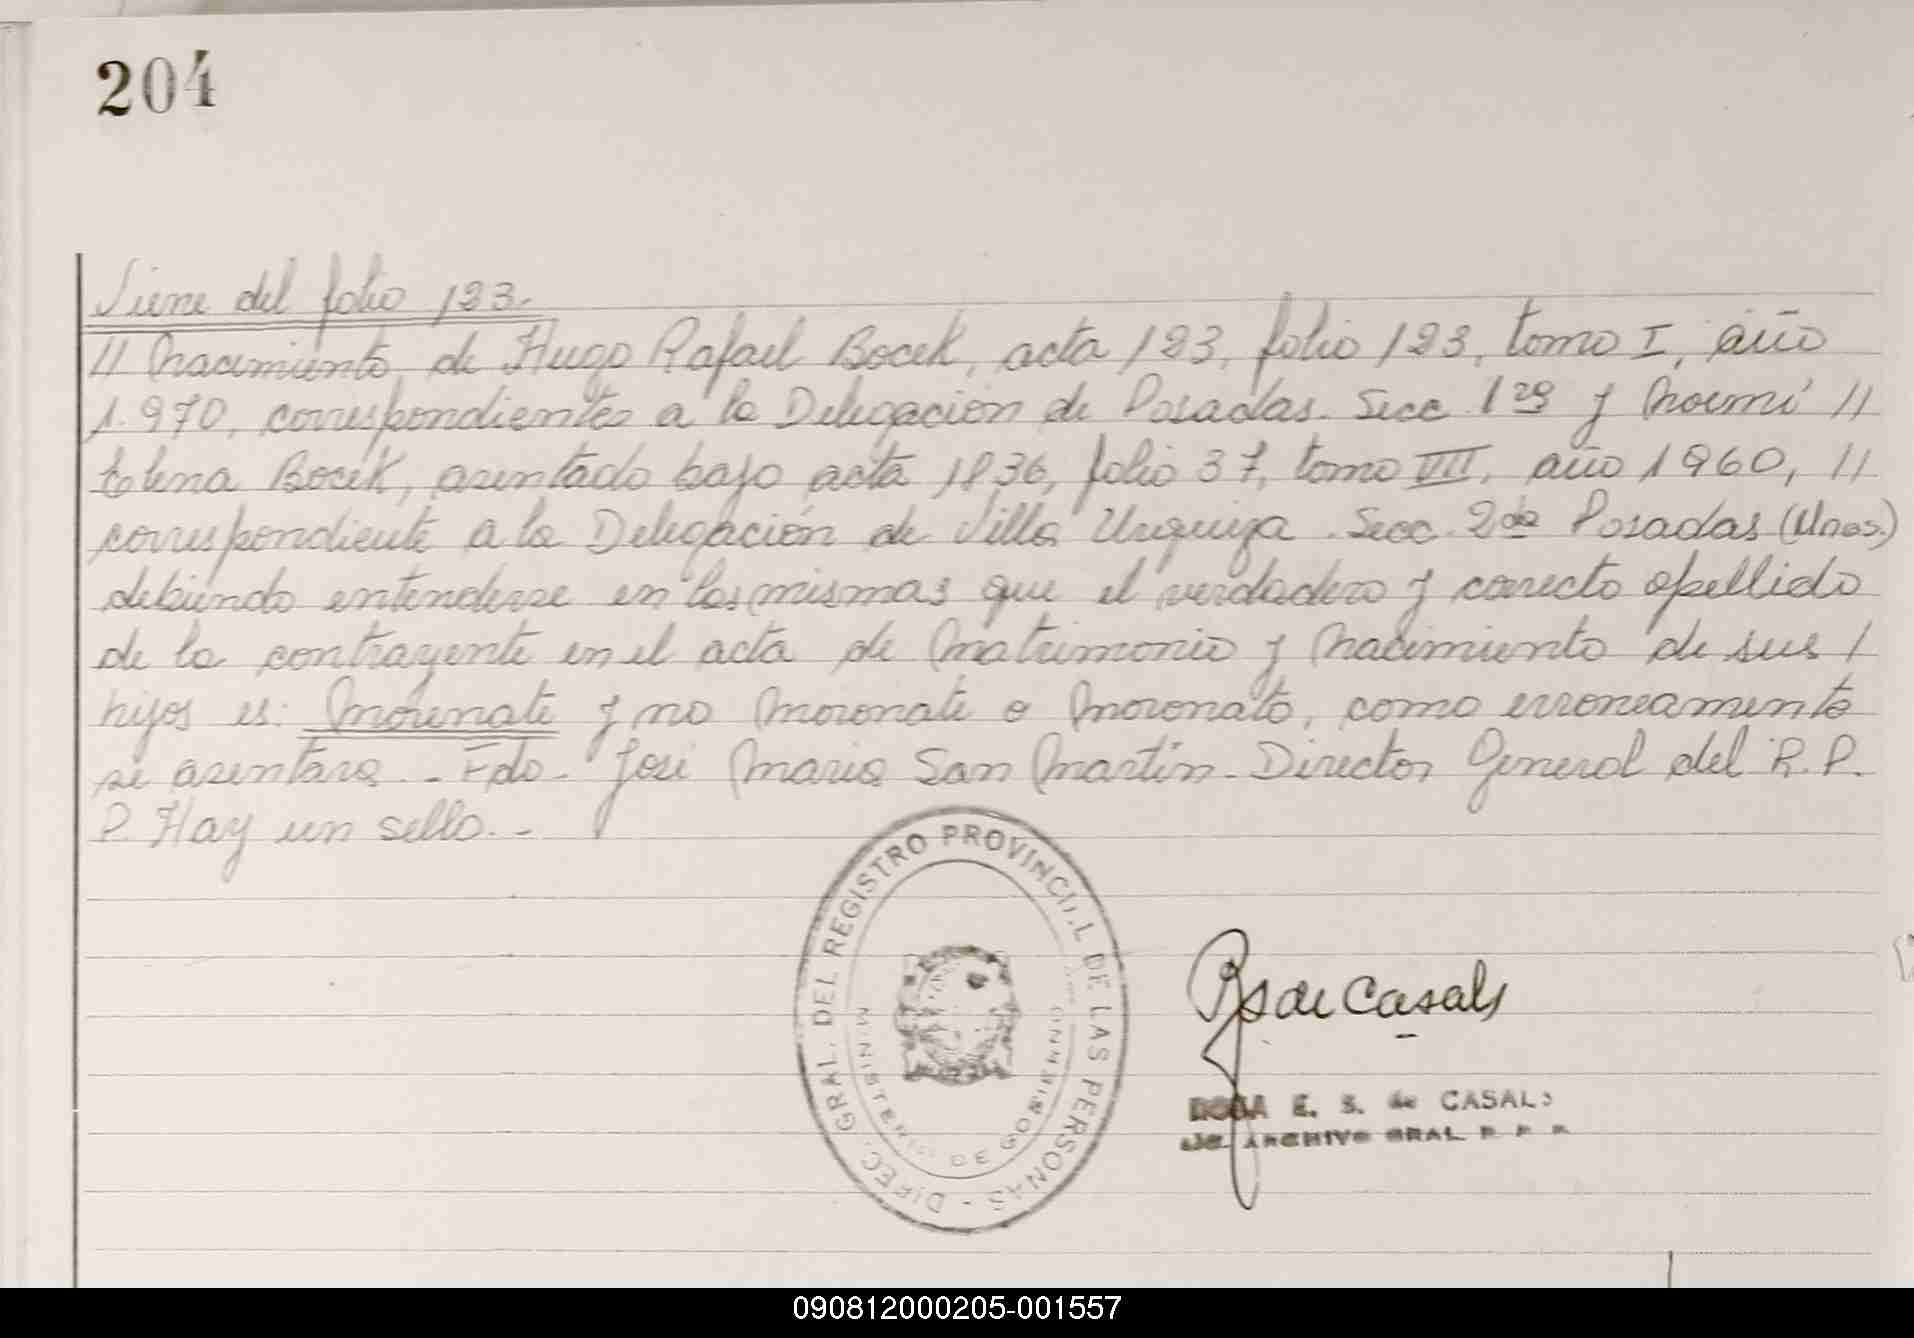 204
Viene del folio 123.
// Nacimiento de Hugo Rafael Bocek, acta 123, folio 123, tomo I, año
1.970, correspondientes a la Delegación de Posadas. Secc 1ra y Noemí //
Elena Bocek, asentado bajo acta 1836, folio 37, tomo VIII, año 1960, //
correspondiente a la Delegación de Villa Urquiza. Secc. 2da Posadas (Mnes.)
debiendo entenderse en las mismas que el verdadero y correcto apellido
de la contrayente en el acta de Matrimonio y Nacimiento de sus /
hijos es: Morenate y no Moronate o Moronato, como erroneamente
se asentara. - Fdo - José Maria San Martín - Director General del R. P.
P. Hay un sello. -
DIREC. GRAL. DEL REGISTRO PROVINCIAL DE LAS PERSONAS -
MINISTERIO DE GOBIERNO
RS de Casals
ROSA E. S. de CASALS
ARCHIVO GRAL R. P. P.
090812000205-001557